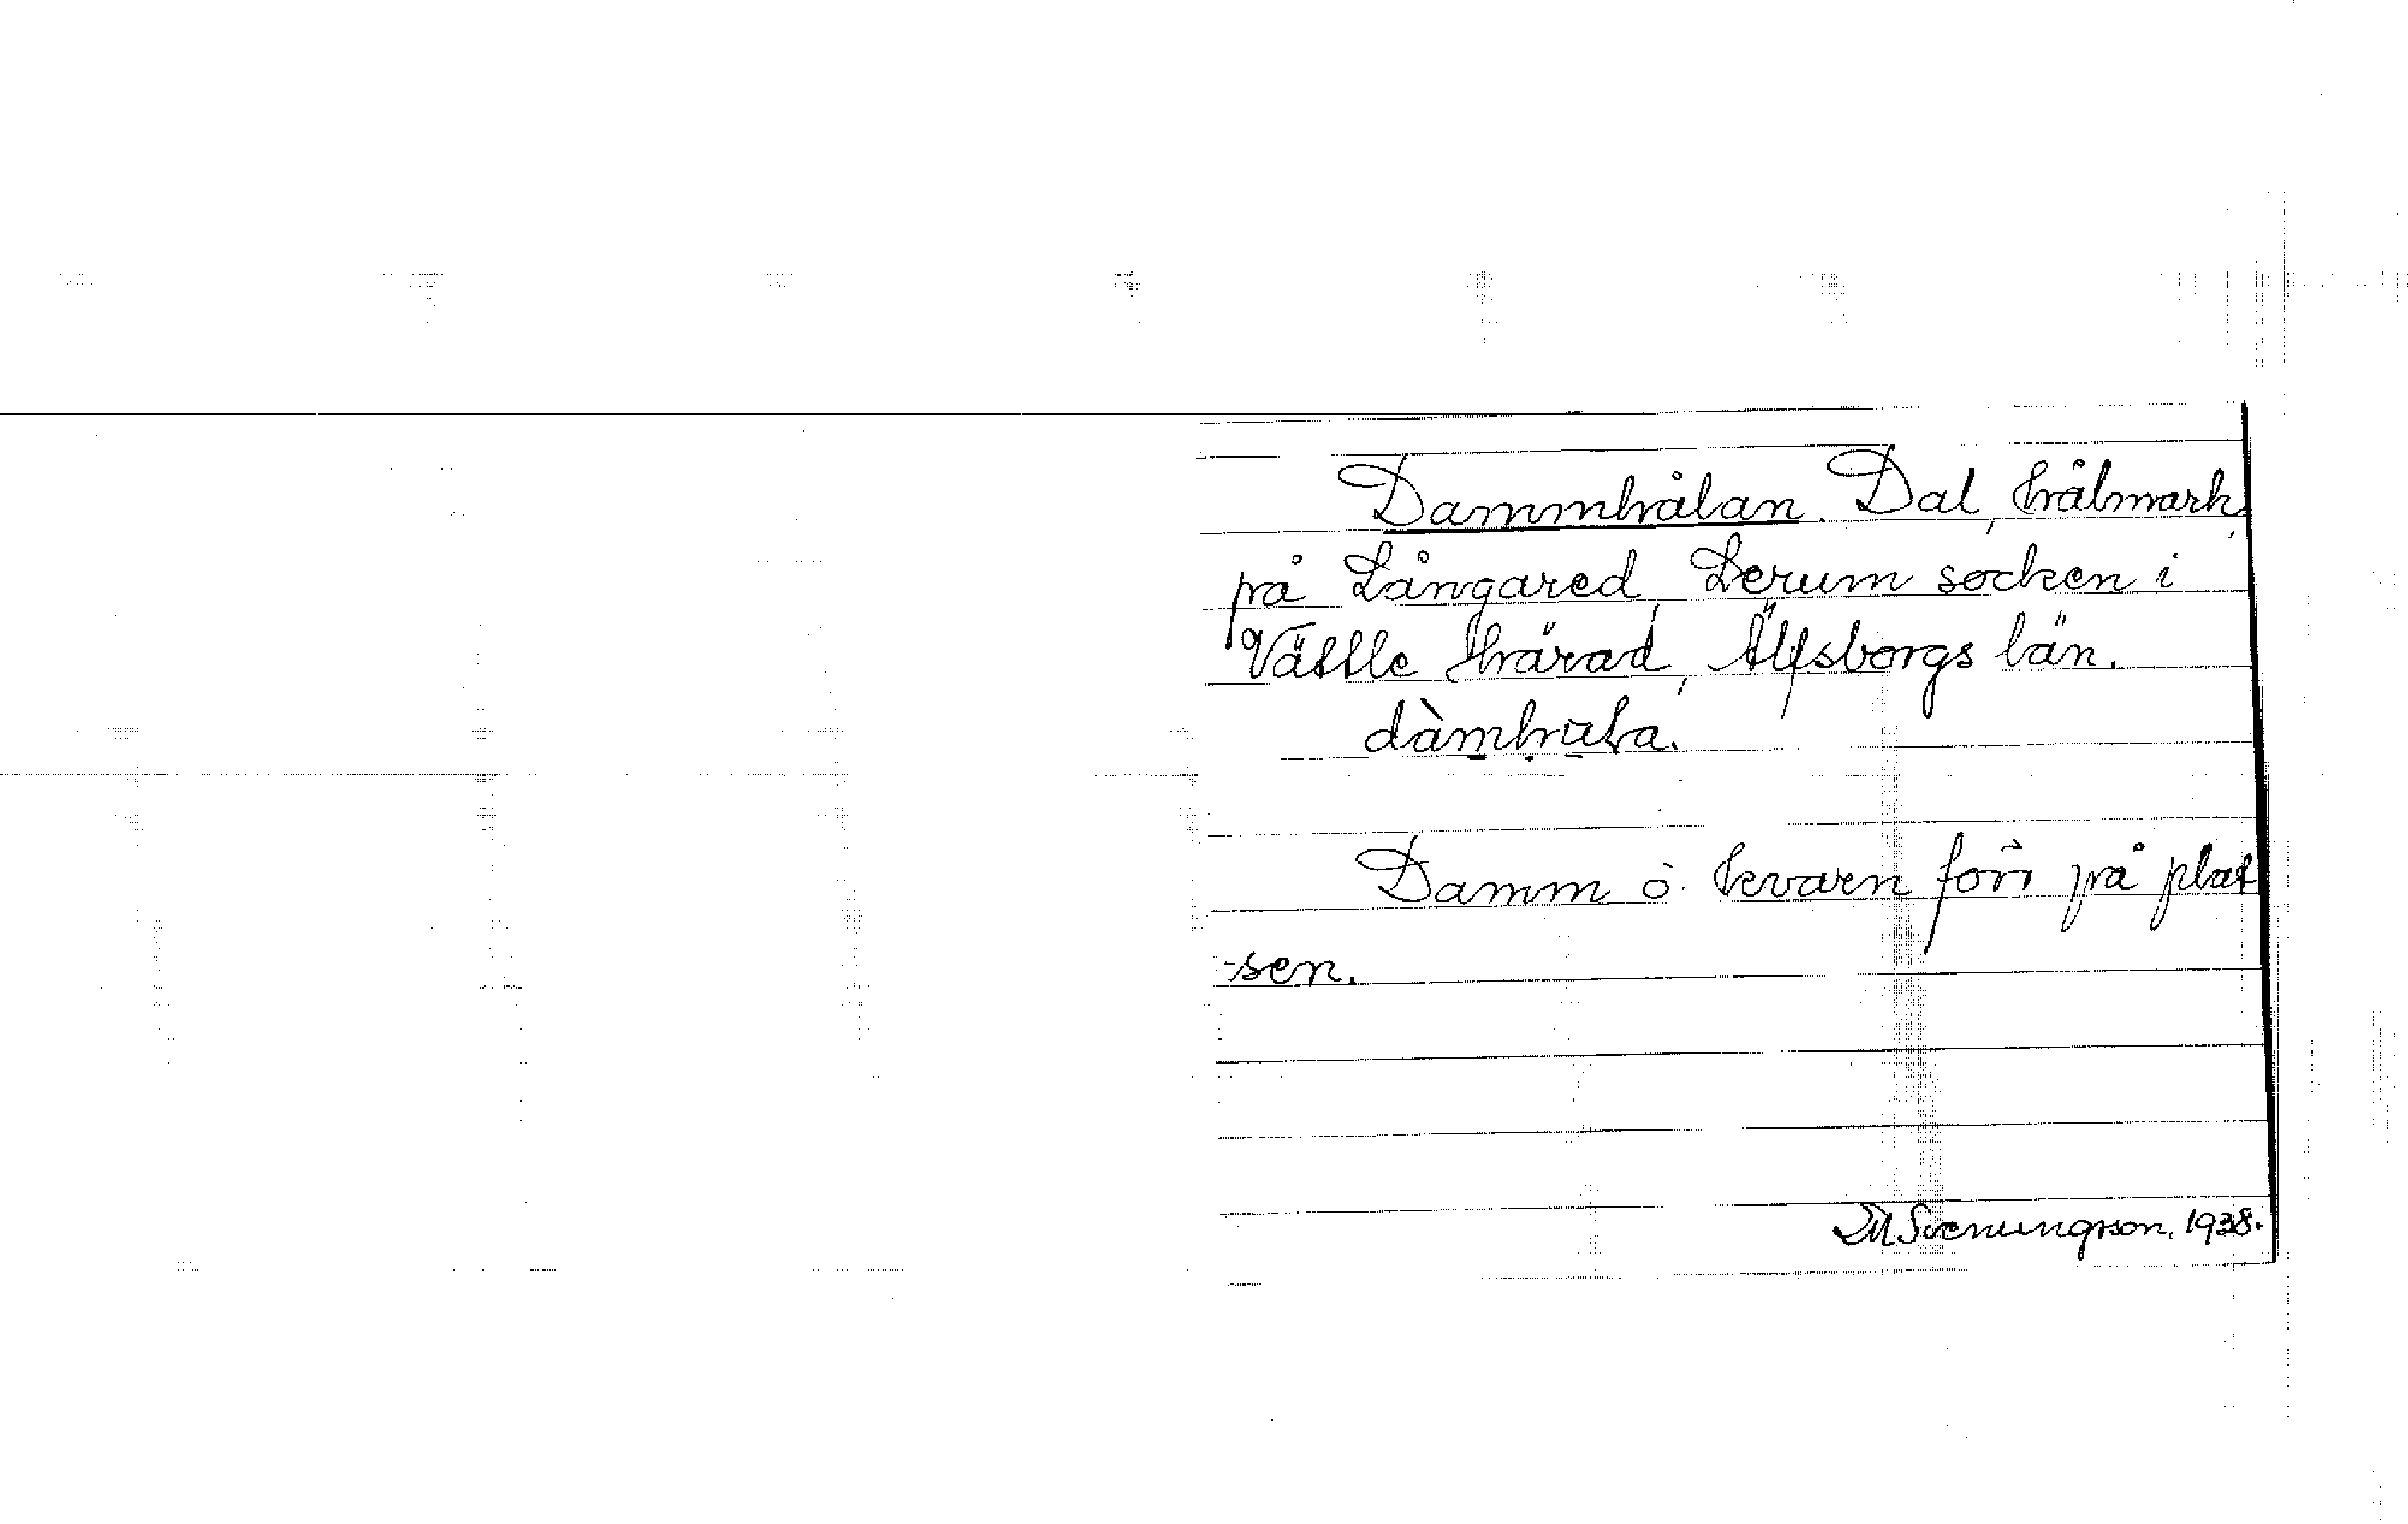 Dammhålan. Dal, hålmark,
på Långared, Lerum socken i
Vättle härad, Älfsborgs län.
Damm o. kvarn förr på plat
-sen.
M. Svenungson. 1938.